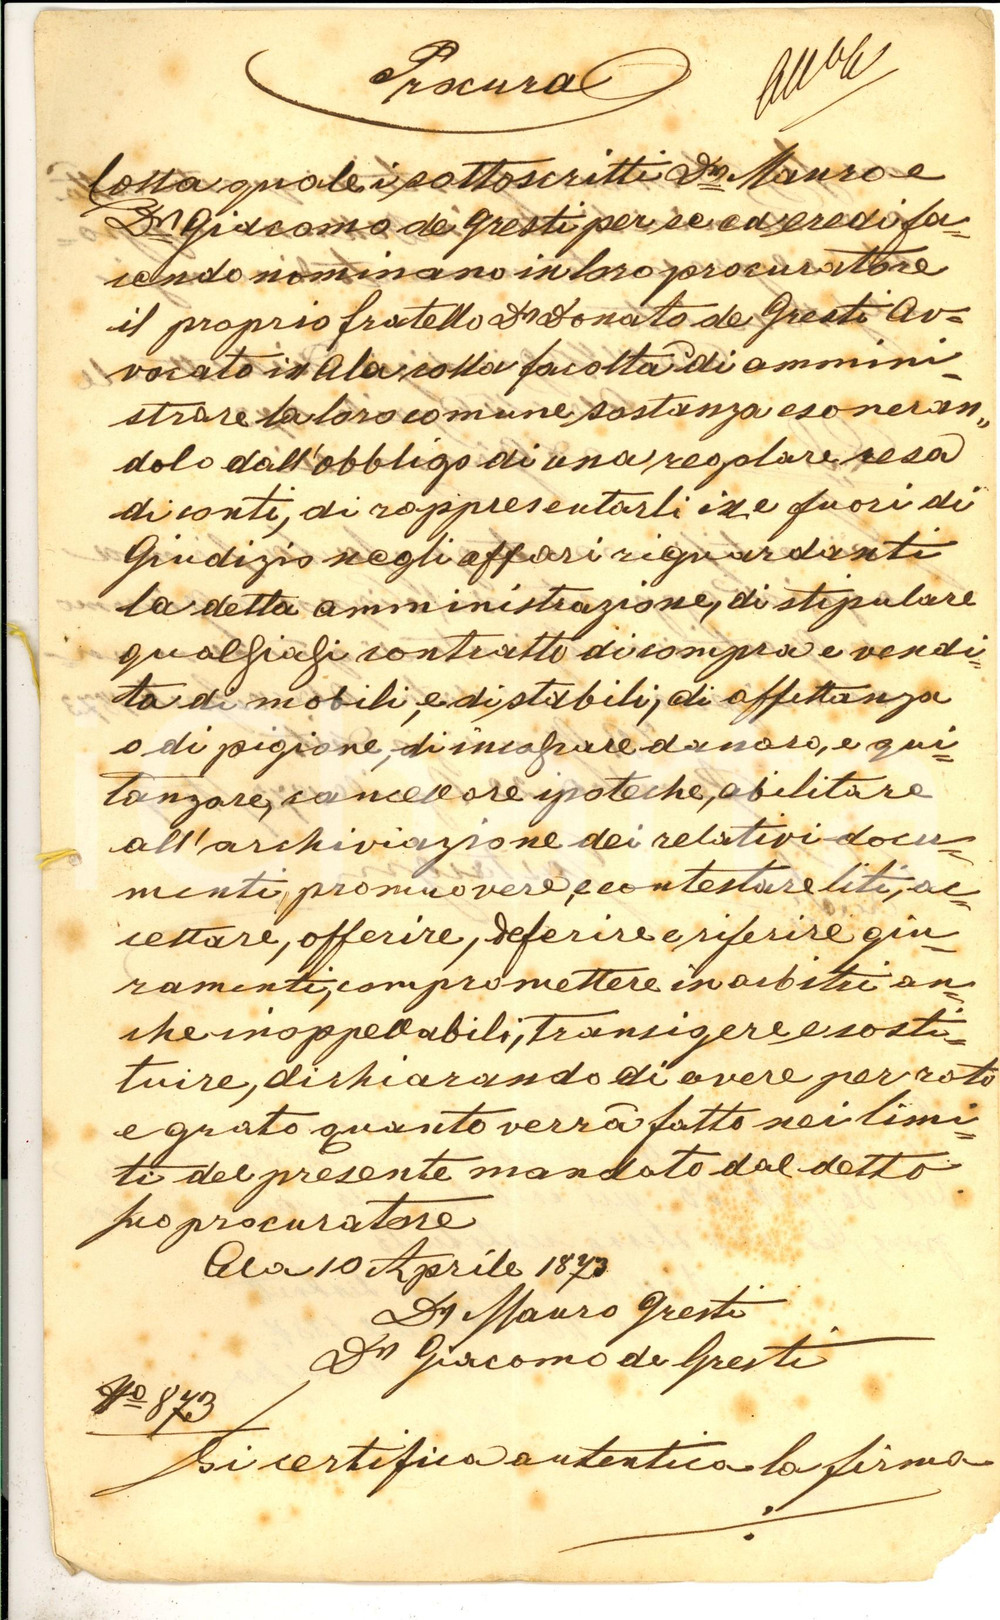 Procura
Colla quale i sottoscritti Dn Mauro e
Dn Giacomo de Gresti per se ed eredi fa=
cendo nominano in loro procuratore
il proprio fratello Dn Donato de Gresti Av=
vocato in Ala colla facoltà di ammini=
strare la loro comune sostanza esoneran=
dolo dall'obbligo di una regolare resa
di conti, di rappresentarli in e fuori di
Giudizio negli affari riguardanti
la detta amministrazione, di stipulare
qualsiasi contratto di compra e vendi=
ta di mobili, e di stabili, di affittanza
o di pigione, di incassare danaro, e qui=
tanzare, cancellare ipoteche, abilitare
all'archiviazione dei relativi docu=
menti, promuovere, e contestare liti, ac=
cettare, offerire, deferire e riferire giu=
ramenti, compromettere in arbitri an=
che inappellabili, transigere e sosti=
tuire, dichiarando di avere per rato
e grato quanto verrà fatto nei limi=
ti del presente mandato dal detto
suo procuratore
Ala 10 Aprile 1873
Dn Mauro Gresti
Dn Giacomo de Gresti
No 873
Si certifica autentica la firma